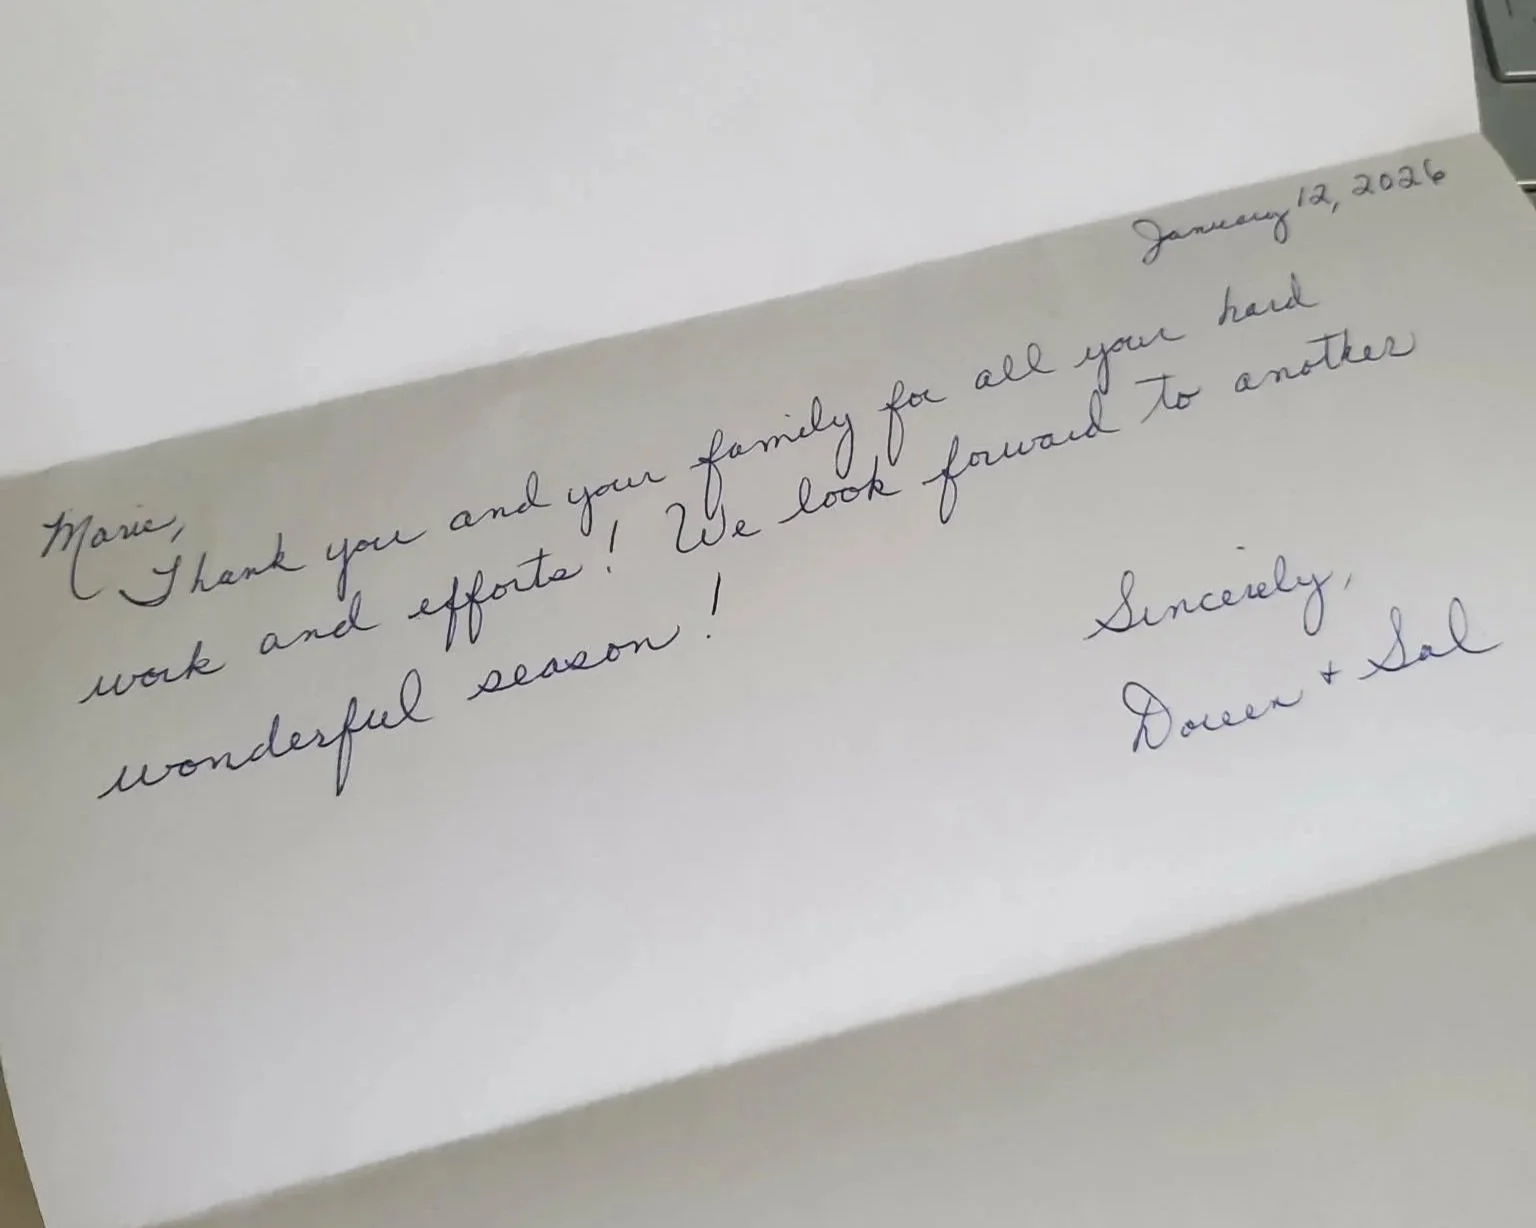 January 12, 2026
Marie,
Thank you and your family for all your hard
work and efforts! We look forward to another
wonderful season!
Sincerely,
Doreen + Sal